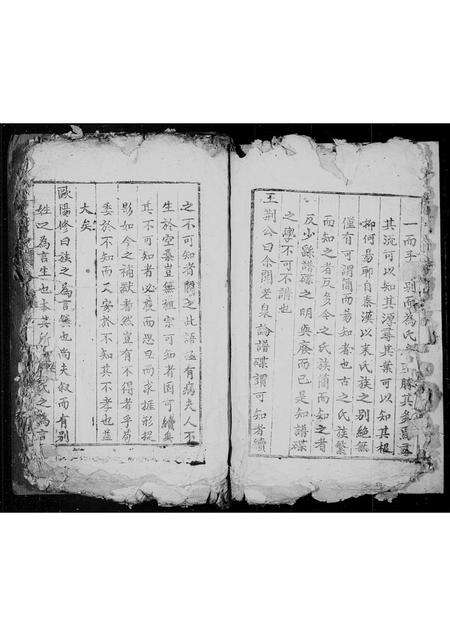 一而乎 別而為氏 勝其多焉
其流可以知其源尋其葉可以知其根
抑何易耶自秦漢以來氏族之別絕無
僅有可謂簡而易知者也古之氏族繁
而知之者反多今之氏族簡而知之者
反少繇譜牒之明與廢而已是知譜牒
之學不可不講也
王荊公曰余聞老泉論譜牒謂可知者續
之不可知者闕之此語洫有病夫人不
生於空桑豈無祖宗可知者固可續與
其不可知者必廣而思旦而求推形捉
影如今之補獄者然豈有不得者乎苟
委於不知而又安於不知其不孝也益
大矣
歐陽修曰族之為言 也尚夫叙而有別
姓之為言生也本其所 氏之為言